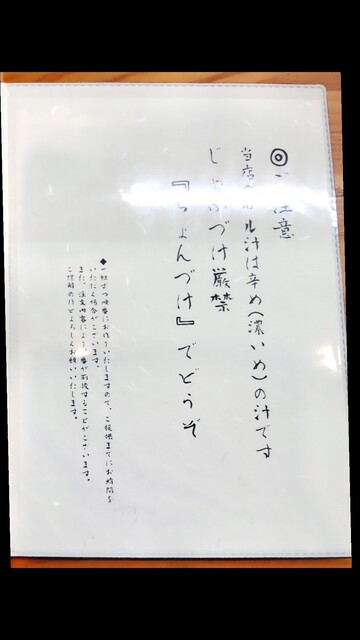 ◎ご注意
当店のモル汁は辛め(濃いめ)の汁です
じゃぶづけ厳禁
『ちょんづけ』でどうぞ
◆一組ずつ順番にお作りいたしますので、ご提供までにお時間を
いただく場合がございます。
また、注文内容により順番が前後することがございます。
ご理解の程どよろしくお願いいたします。